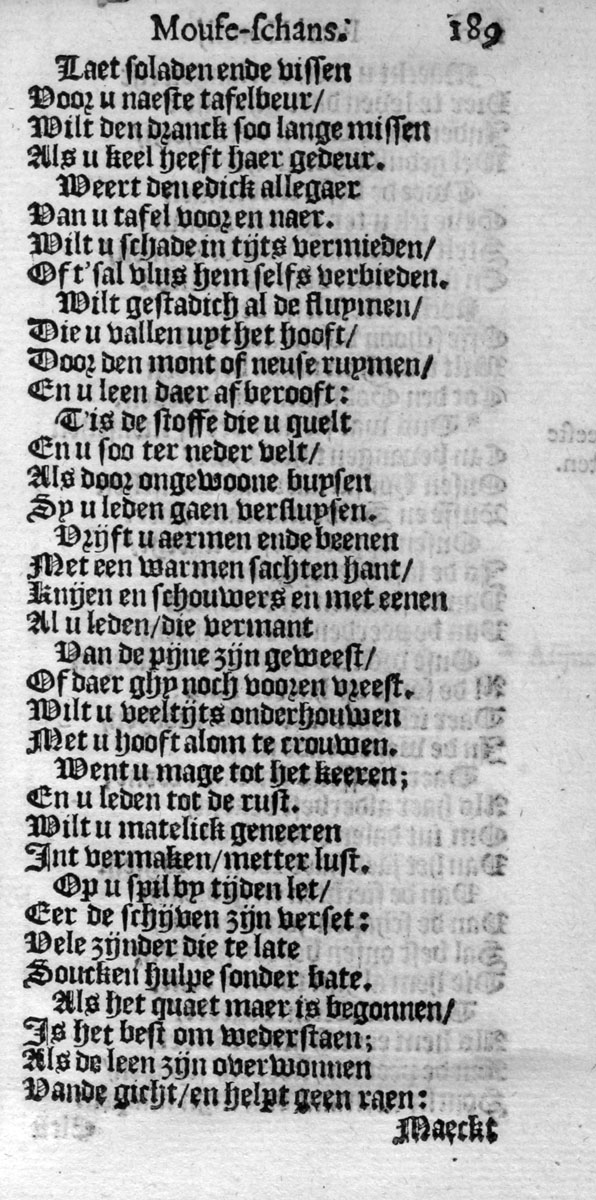 Mouse-schans. 189
Laet soladen ende vissen
Voor u naeste tafelbeur/
Wilt den dranck soo lange missen
Als u keel heeft haer gedeur.
Weert den edick allegaer
Van u tafel voor en naer.
Wilt u schade in tijts vermieden/
Of t'sal vlus hem selfs verbieden.
Wilt gestadich al de fluymen/
Die u vallen uyt het hooft/
Door den mont of neuse ruymen/
En u leen daer af berooft:
T'is de stoffe die u quelt
En u soo ter neder velt/
Als door ongewoone buysen
Sy u leden gaen verfluysen.
Vrijft u aermen ende beenen
Met een warmen sachten hant/
Knijen en schouwers en met eenen
Al u leden/die vermant
Van de pijne zijn geweest/
Of daer ghy noch vooren vreest.
Wilt u veeltijts onderhouwen
Met u hooft alom te crouwen.
Went u mage tot het keeren;
En u leden tot de rust.
Wilt u matelick geneeren
Int vermaken/metter lust.
Op u spil by tijden let/
Eer de schijven zijn verset:
Vele zijnder die te late
Soucken hulpe sonder bate.
Als het quaet maer is begonnen/
Is het best om wederstaen;
Als de leen zijn overwonnen
Vande gicht/en helpt geen raen:
Maeckt